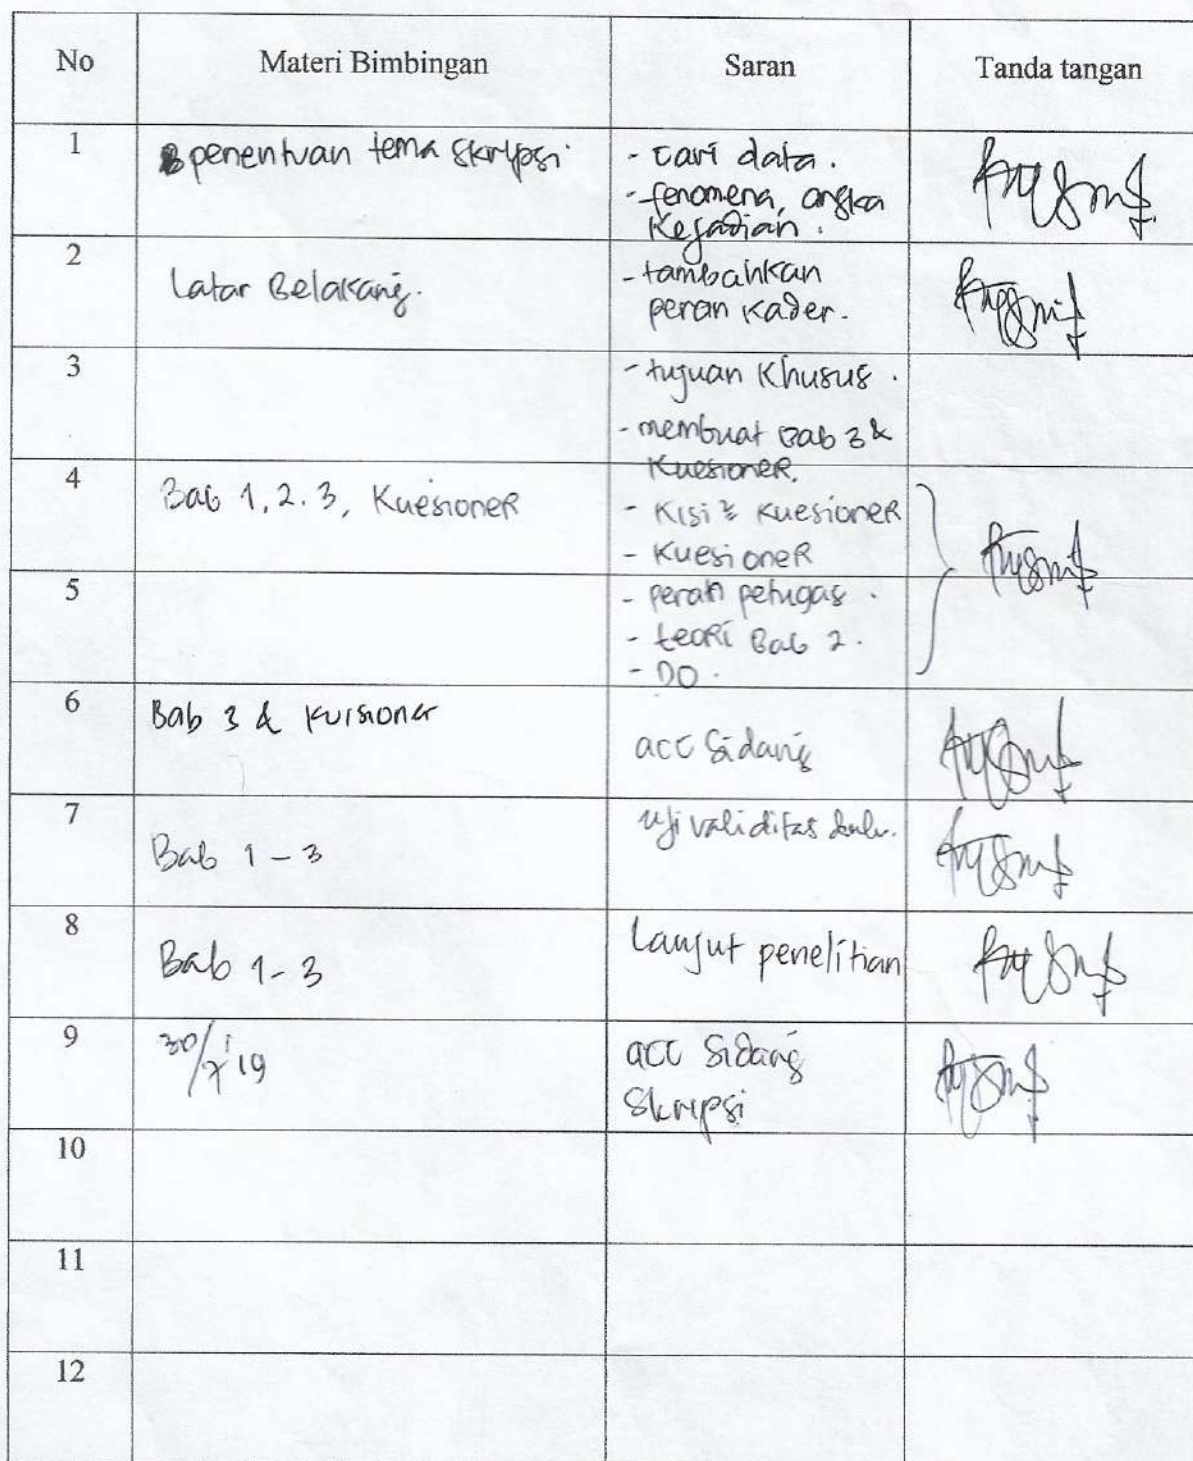 No Materi Bimbingan Saran Tanda tangan
1 penentuan tema skripsi - cari data.
- fenomena, angka
kejadian.
2 Latar Belakang. - tambahkan
peran kader.
3 - tujuan khusus.
- membuat Bab 3 &
kuesioneR.
4 Bab 1, 2. 3, KuesioneR - Kisi² kuesioneR
- KuesioneR
5 - peran petugas.
- teori Bab 2.
- DO.
6 Bab 3 & kuisioner acc Sidang
7 Bab 1 - 3 uji validitas
8 Bab 1 - 3 Lanjut penelitian
9 30/7 '19 acc Sidang
Skripsi
10
11
12